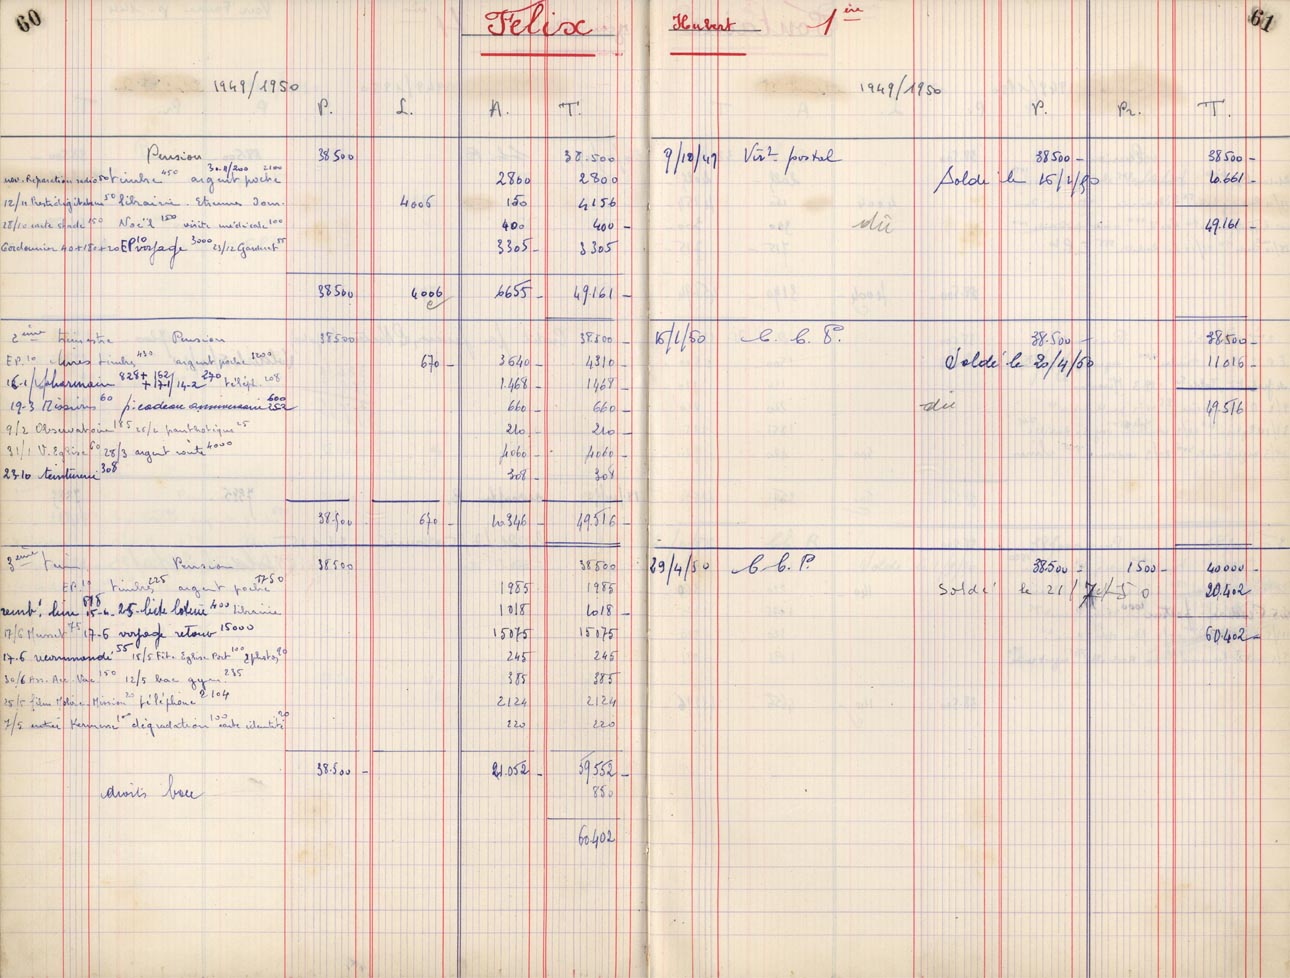 60
Felix
Hubert 1ère
61
1949/1950
P. L. A. T.
Pension 38500 38.500
nov. Réparation radio 50 timbre 450 argent poche 2100 2800 2800
12/11 Prestidigitateur 50 librairie. Etrennes Dom. 4006 150 4156
28/10 carte stade 150 Noël 150 visite médicale 100 400 400 -
Cordonnier 40+180+20 EP 10 voyage 3000 23/12 3305 - 3305
38500 4006 6655 - 49.161 -
2ème trimestre Pension 38500 38.500 -
EP. 10 timbres 430 argent poche 1200 670 - 3640 - 4310 -
16-1 pharmacie 828 + 162 + 17-1/14-2 270 téléph. 208 1.468 - 1468 -
19-3 Missions 60 anniversaire 600 660 - 660 -
9/2 Observatoire 185 25/2 25 210 - 210 -
31/1 V. Eglise 60 28/3 argent route 4000 4060 - 4060 -
23-10 teinturerie 308 308 - 308
38.500 670 - 10.346 - 49.516 -
3ème trim. Pension 38500 38500
EP. 10 timbres 225 argent poche 1750 1985 1985
remb. livre 15-4 25- loterie 400 librairie 1018 1018 -
17/6 Musset 75 17-6 voyage retour 15000 15075 15075
17-6 recommandé 55 15/5 Fête Eglise Port 100 2 photos 90 245 245
30/6 150 12/5 bac gym. 235 385 385
25/5 film Mission 20 téléphone 2104 2124 2124
7/5 entrée Kermesse 100 dégradation 100 carte identité 20 220 220
38.500 - 21.052 - 59552 -
droits bacc 850
60.402
1949/1950
P. Pr. T.
9/12/49 Virt postal 38500 - 38500 -
Soldé le 16/1/50 10.661 -
dû 49.161 -
16/1/50 C. C. P. 38.500 - 38.500 -
Soldé le 20/4/50 11016 -
dû 49.516 -
29/4/50 C. C. P. 38.500 - 1500 - 40000 -
Soldé le 21/7/50 20.402
60.402 -